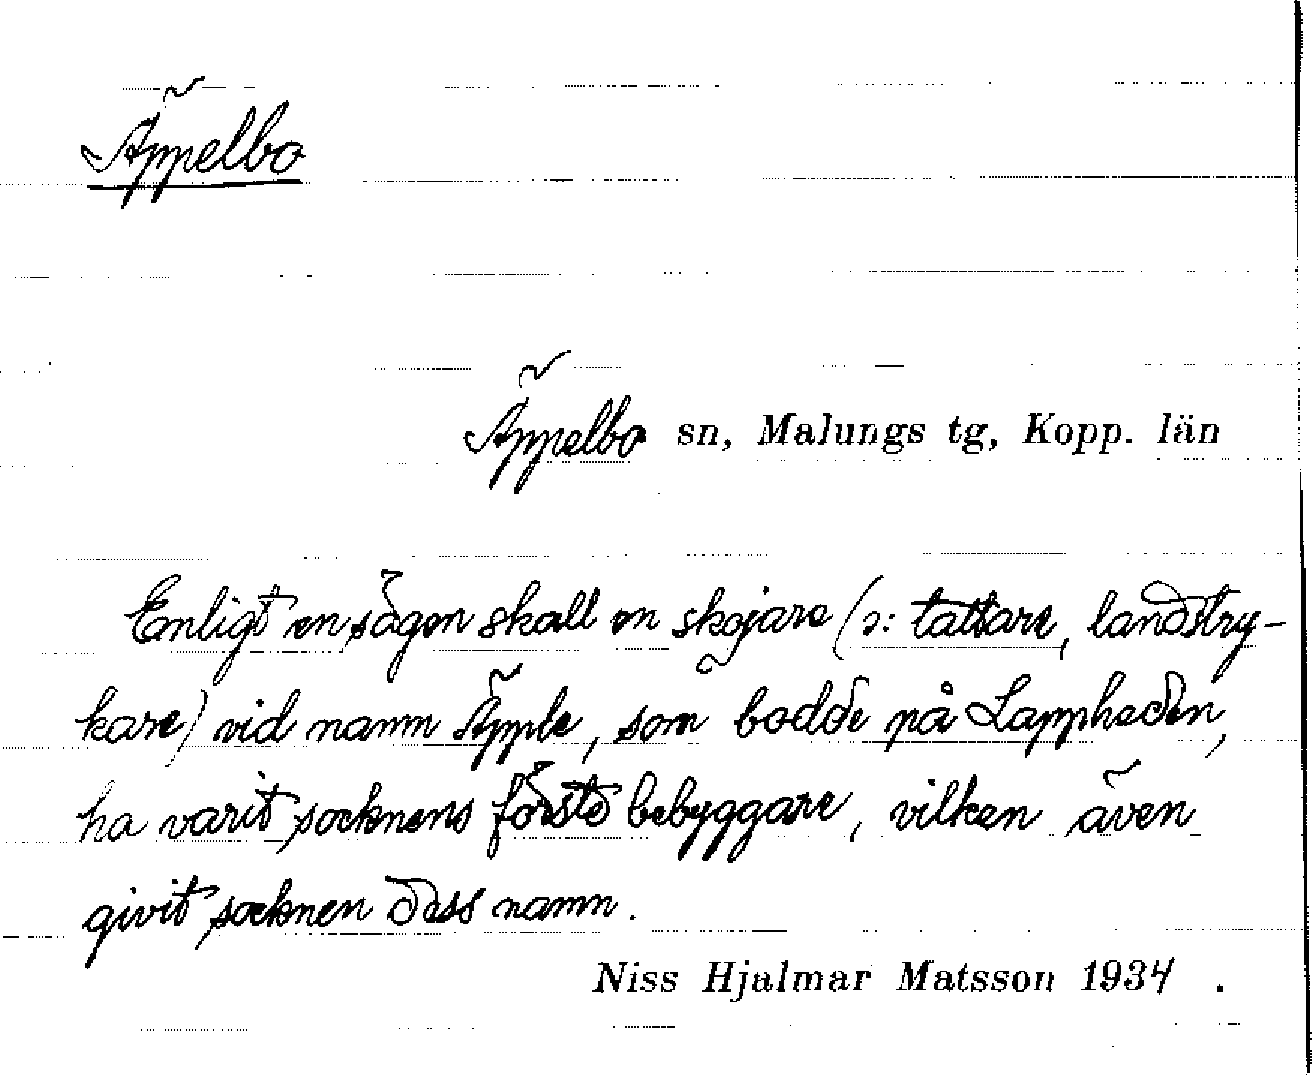 Äppelbo
Äppelbo sn, Malungs tg, Kopp. län
Enligt en sägen skall en skojare (ɔ: tattare, landstry-
kare) vid namn Äpple, som bodde på Lappheden,
ha varit socknens förste bebyggare, vilken även
givit socknen dess namn.
Niss Hjalmar Matsson 1934 .